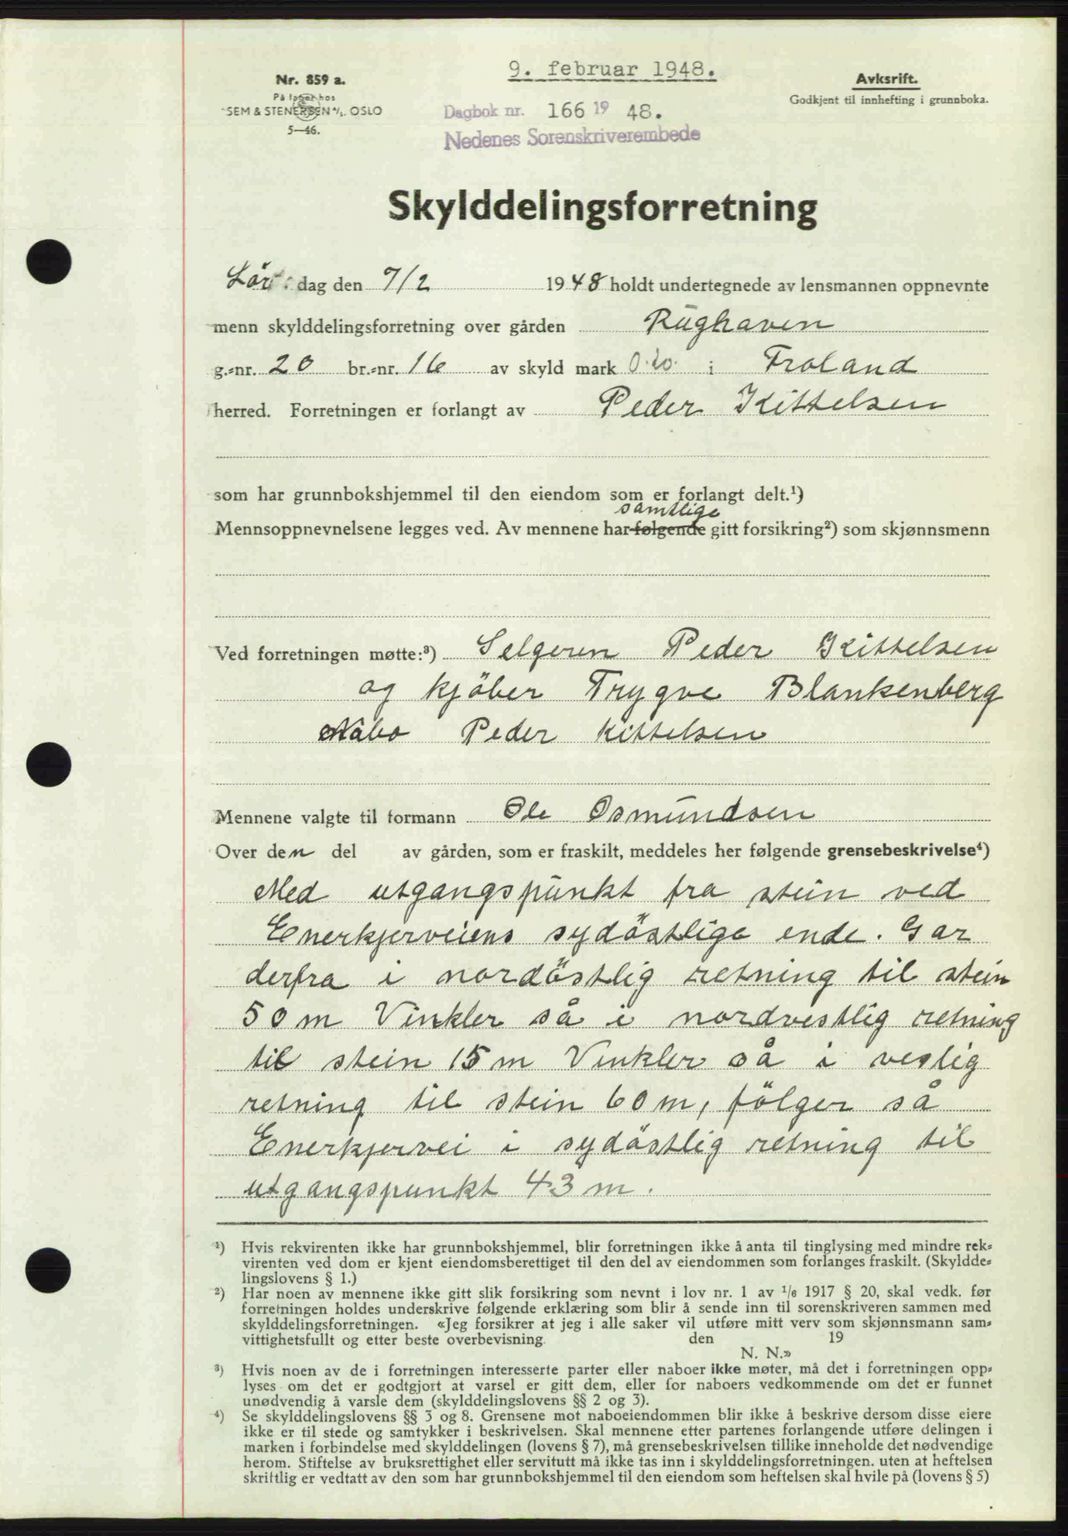 9. februar 1948.
Nr. 859 a.
På lager hos
SEM & STENERSEN A/S. OSLO
5—46.
Avksrift.
Godkjent til innhefting i grunnboka.
Dagbok nr. 166 19 48.
Nedenes Sorenskriverembede
Skylddelingsforretning
Lör. dag den 7/2 1948 holdt undertegnede av lensmannen oppnevnte
menn skylddelingsforretning over gården Rughaven
g.-nr. 20 br.-nr. 16 av skyld mark 0.20. i Froland
herred. Forretningen er forlangt av Peder Kittelsen
som har grunnbokshjemmel til den eiendom som er forlangt delt.¹)
samtlige
Mennsoppnevnelsene legges ved. Av mennene har følgende gitt forsikring²) som skjønnsmenn
Ved forretningen møtte:³) Selgeren Peder Kittelsen
og kjöber Trygve Blankenberg
Nabo Peder Kittelsen
Mennene valgte til formann Ole Osmundsen
Over den del av gården, som er fraskilt, meddeles her følgende grensebeskrivelse⁴)
Med utgangspunkt fra stein ved
Enerkjerveiens sydöstlige ende. Gar
derfra i nordöstlig retning til stein
50 m Vinkler så i nordvestlig retning
til stein 15 m Vinkler så i veslig
retning til stein 60 m, fölger så
Enerkjervei i sydöstlig retning til
utgangspunkt 43 m.
¹) Hvis rekvirenten ikke har grunnbokshjemmel, blir forretningen ikke å anta til tinglysing med mindre rek-
virenten ved dom er kjent eiendomsberettiget til den del av eiendommen som forlanges fraskilt. (Skyldde-
lingslovens § 1.)
²) Har noen av mennene ikke gitt slik forsikring som nevnt i lov nr. 1 av ¹/₆ 1917 § 20, skal vedk. før
forretningen holdes underskrive følgende erklæring som blir å sende inn til sorenskriveren sammen med
skylddelingsforretningen. «Jeg forsikrer at jeg i alle saker vil utføre mitt verv som skjønnsmann sam-
vittighetsfullt og etter beste overbevisning. den 19
N. N.»
³) Hvis noen av de i forretningen interesserte parter eller naboer ikke møter, må det i forretningen opp-
lyses om det er godtgjort at varsel er gitt dem, eller for naboers vedkommende om det er funnet
unødvendig å varsle dem (skylddelingslovens §§ 2 og 3).
⁴) Se skylddelingslovens §§ 3 og 8. Grensene mot naboeiendommen blir ikke å beskrive dersom disse eiere
ikke er til stede og samtykker i beskrivelsen. Skal mennene etter partenes forlangende utføre delingen i
marken i forbindelse med skylddelingen (lovens § 7), må grensebeskrivelsen tillike inneholde det nødvendige
herom. Stiftelse av bruksrettighet eller servitutt må ikke tas inn i skylddelingsforretningen. uten at heftelsen
skriftlig er vedtatt av den som har grunnbokshjemmel til den eiendom som heftelsen skal hvile på (lovens § 5)